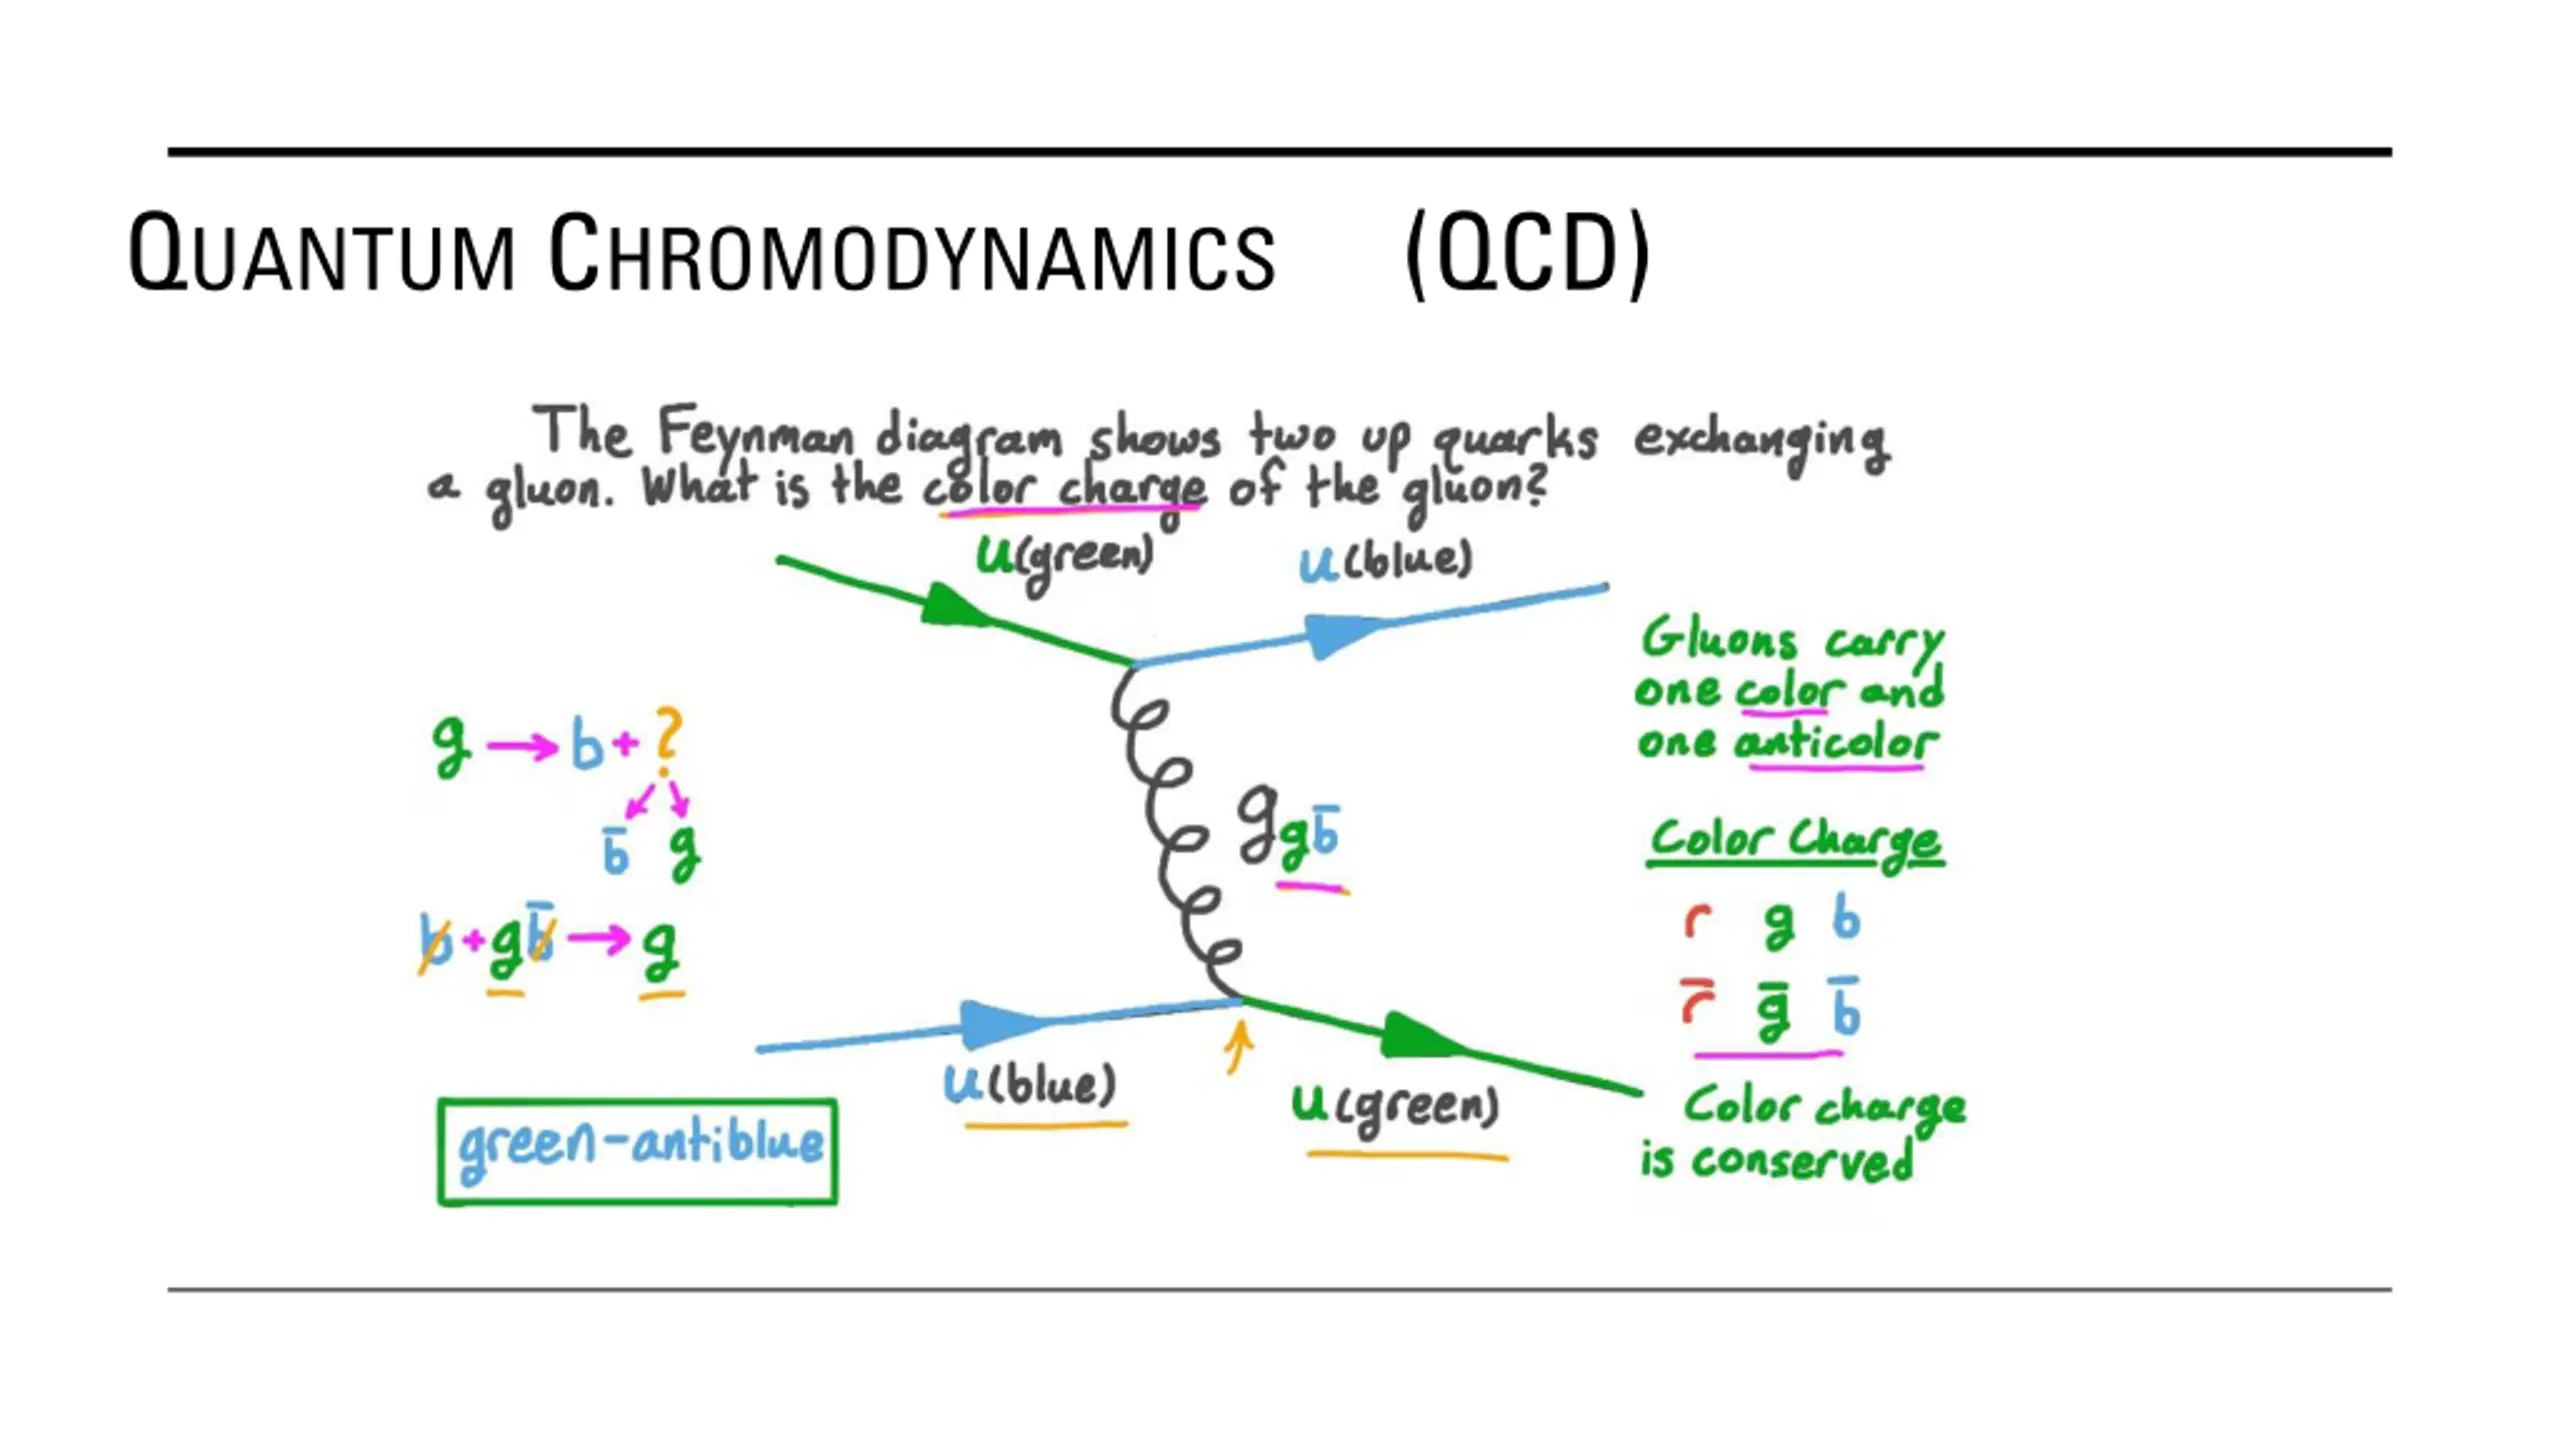 QUANTUM CHROMODYNAMICS (QCD)
The Feynman diagram shows two up quarks exchanging
a gluon. What is the color charge of the gluon?
u(green)
u(blue)
Gluons carry
one color and
one anticolor
g → b + ?
b̄ g
g gb̄
Color Charge
r g b
r̄ ḡ b̄
b + gb̄ → g
u(blue)
u(green)
Color charge
is conserved
green-antiblue